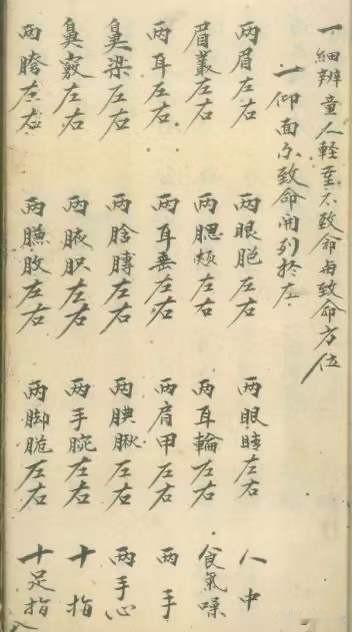 一細辨童人輕重不致命与致命方位
一仰面不致命開列於左
兩眉左右 兩眼胞左右 兩眼睛左右 人中
眉叢左右 兩腮頰左右 兩耳輪左右 食氣嗓
兩耳左右 兩耳垂左右 兩肩甲左右 兩手
鼻梁左右 兩胳膊左右 兩𦚾脉左右 兩手心
鼻竅左右 兩腋胑左右 兩手腕左右 十指
兩胯左右 兩臁肕左右 兩脚脆左右 十足指